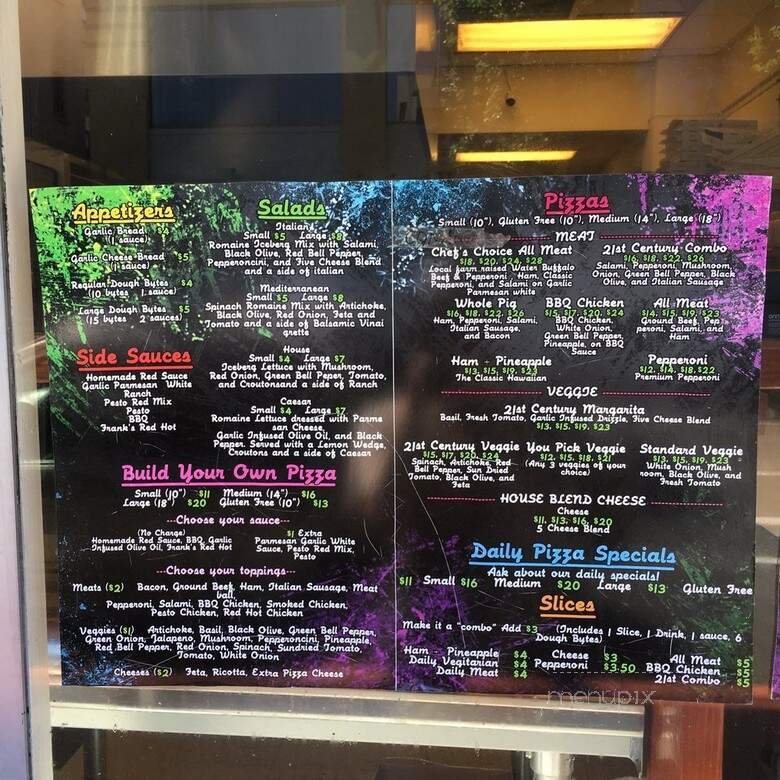 Appetizers
Garlic Bread $4
(1 sauce)
Garlic Cheese Bread $5
(1 sauce)
Regular Dough Bytes $4
(10 bytes 1 sauce)
Large Dough Bytes $5
(15 bytes 2 sauces)
Side Sauces
Homemade Red Sauce
Garlic Parmesan White
Ranch
Pesto Red Mix
Pesto
BBQ
Frank's Red Hot
Salads
Italian
Small $5 Large $8
Romaine Iceberg Mix with Salami,
Black Olive, Red Bell Pepper,
Pepperoncini, and Five Cheese Blend
and a side of italian
Mediterranean
Small $5 Large $8
Spinach Romaine Mix with Artichoke,
Black Olive, Red Onion, Feta and
Tomato and a side of Balsamic Vinai
grette
House
Small $4 Large $7
Iceberg Lettuce with Mushroom,
Red Onion, Green Bell Peper, Tomato,
and Croutonsand a side of Ranch
Caesar
Small $4 Large $7
Romaine Lettuce dressed with Parme
san Cheese,
Garlic Infused Olive Oil, and Black
Pepper. Served with a Lemon Wedge,
Croutons and a side of Caesar
Build Your Own Pizza
Small (10") $11 Medium (14") $16
Large (18") $20 Gluten Free (10") $13
---Choose your sauce---
(No Charge)
Homemade Red Sauce, BBQ, Garlic
Infused Olive Oil, Frank's Red Hot
$1 Extra
Parmesan Garlic White
Sauce, Pesto Red Mix,
Pesto
---Choose your toppings---
Meats ($2) Bacon, Ground Beef, Ham, Italian Sausage, Meat
ball,
Pepperoni, Salami, BBQ Chicken, Smoked Chicken,
Pesto Chicken, Red Hot Chicken
Veggies ($1) Artichoke, Basil, Black Olive, Green Bell Pepper,
Green Onion, Jalapeno, Mushroom, Pepperoncini, Pineapple,
Red Bell Pepper, Red Onion, Spinach, Sundried Tomato,
Tomato, White Onion
Cheeses ($2) Feta, Ricotta, Extra Pizza Cheese
Pizzas
Small (10"), Gluten Free (10"), Medium (14"), Large (18")
MEAT
Chef's Choice All Meat
$18, $20, $24, $28
Local farm raised Water Buffalo
Beef & Pepperoni, Ham, Classic
Pepperoni, and Salami on Garlic
Parmesan white
21st Century Combo
$16, $18, $22, $26
Salami, Pepperoni, Mushroom,
Onion, Green Bell Pepper, Black
Olive, and Italian Sausage
Whole Pig
$16, $18, $22, $26
Ham, Pepperoni, Salami,
Italian Sausage,
and Bacon
BBQ Chicken
$15, $17, $20, $24
BBQ, Chicken,
White Onion,
Green Bell Pepper,
Pineapple, on BBQ
Sauce
All Meat
$14, $15, $19, $23
Ground Beef, Pep
peroni, Salami, and
Ham
Ham - Pineapple
$13, $15, $19, $23
The Classic Hawaiian
Pepperoni
$12, $14, $18, $22
Premium Pepperoni
VEGGIE
21st Century Margarita
Basil, Fresh Tomato, Garlic Infused Drizzle, Five Cheese Blend
$13, $15, $19, $23
21st Century Veggie
$15, $17, $20, $24
Spinach, Artichoke, Red
Bell Pepper, Sun Dried
Tomato, Black Olive, and
Feta
You Pick Veggie
$12, $15, $18, $21
(Any 3 veggies of your
choice)
Standard Veggie
$13, $15, $19, $23
White Onion, Mush
room, Black Olive, and
Fresh Tomato
HOUSE BLEND CHEESE
Cheese
$11, $13, $16, $20
5 Cheese Blend
Daily Pizza Specials
Ask about our daily specials!
$11 Small $16 Medium $20 Large $13 Gluten Free
Slices
Make it a "combo" Add $3 (Includes 1 Slice, 1 Drink, 1 sauce, 6
Dough Bytes)
Ham - Pineapple $4
Daily Vegitarian $4
Daily Meat $4
Cheese $3
Pepperoni $3.50
All Meat $5
BBQ Chicken $5
21st Combo $5
menupix